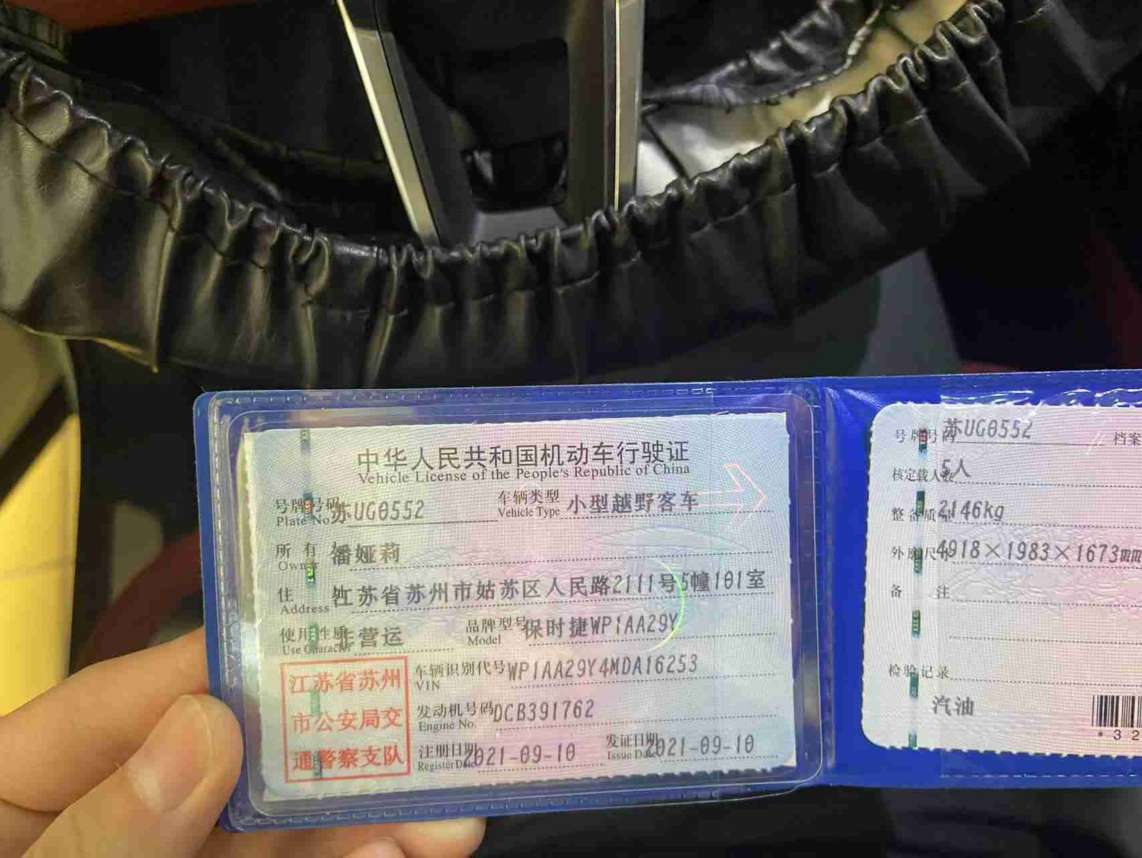 中华人民共和国机动车行驶证
Vehicle License of the People's Republic of China
号牌号码 苏UG0552 车辆类型 小型越野客车
Plate No. Vehicle Type
所有 潘娅莉
Owner
住 江苏省苏州市姑苏区人民路2111号5幢101室
Address
使用性质 非营运 品牌型号 保时捷WP1AA29Y
Use Character Model
江苏省苏州
市公安局交
通警察支队
车辆识别代号 WP1AA29Y4MDA16253
VIN
发动机号码 DCB391762
Engine No.
注册日期 2021-09-10 发证日期 2021-09-10
Register Date Issue Date
号牌号码 苏UG0552 档案
核定载人数 5人
整备质量 2146kg
外廓尺寸 4918×1983×1673mm
备注
检验记录
汽油
*32